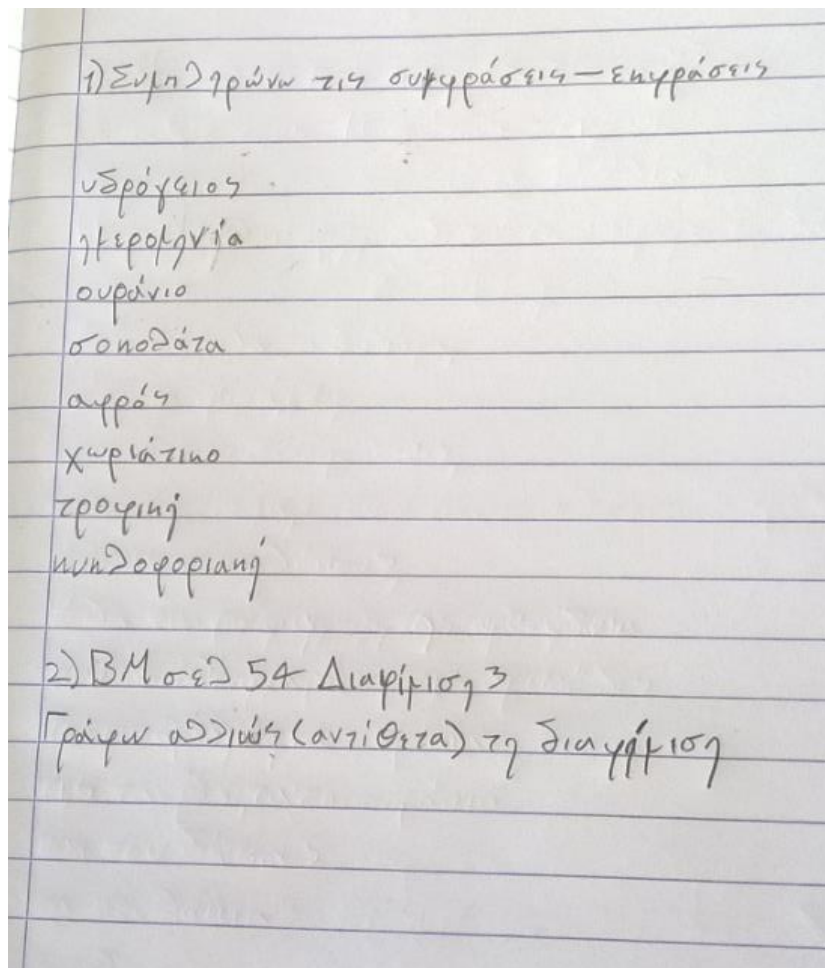 1) Συμπληρώνω τις συμφράσεις - εκφράσεις
υδρόγειος
ημερομηνία
ουράνιο
σοκολάτα
αφρός
χωριάτικο
τροφική
κυκλοφοριακή
2) ΒΜ σελ 54 Διαφίμιση 3
Γράφω αλλιώς (αντίθετα) τη διαφήμιση